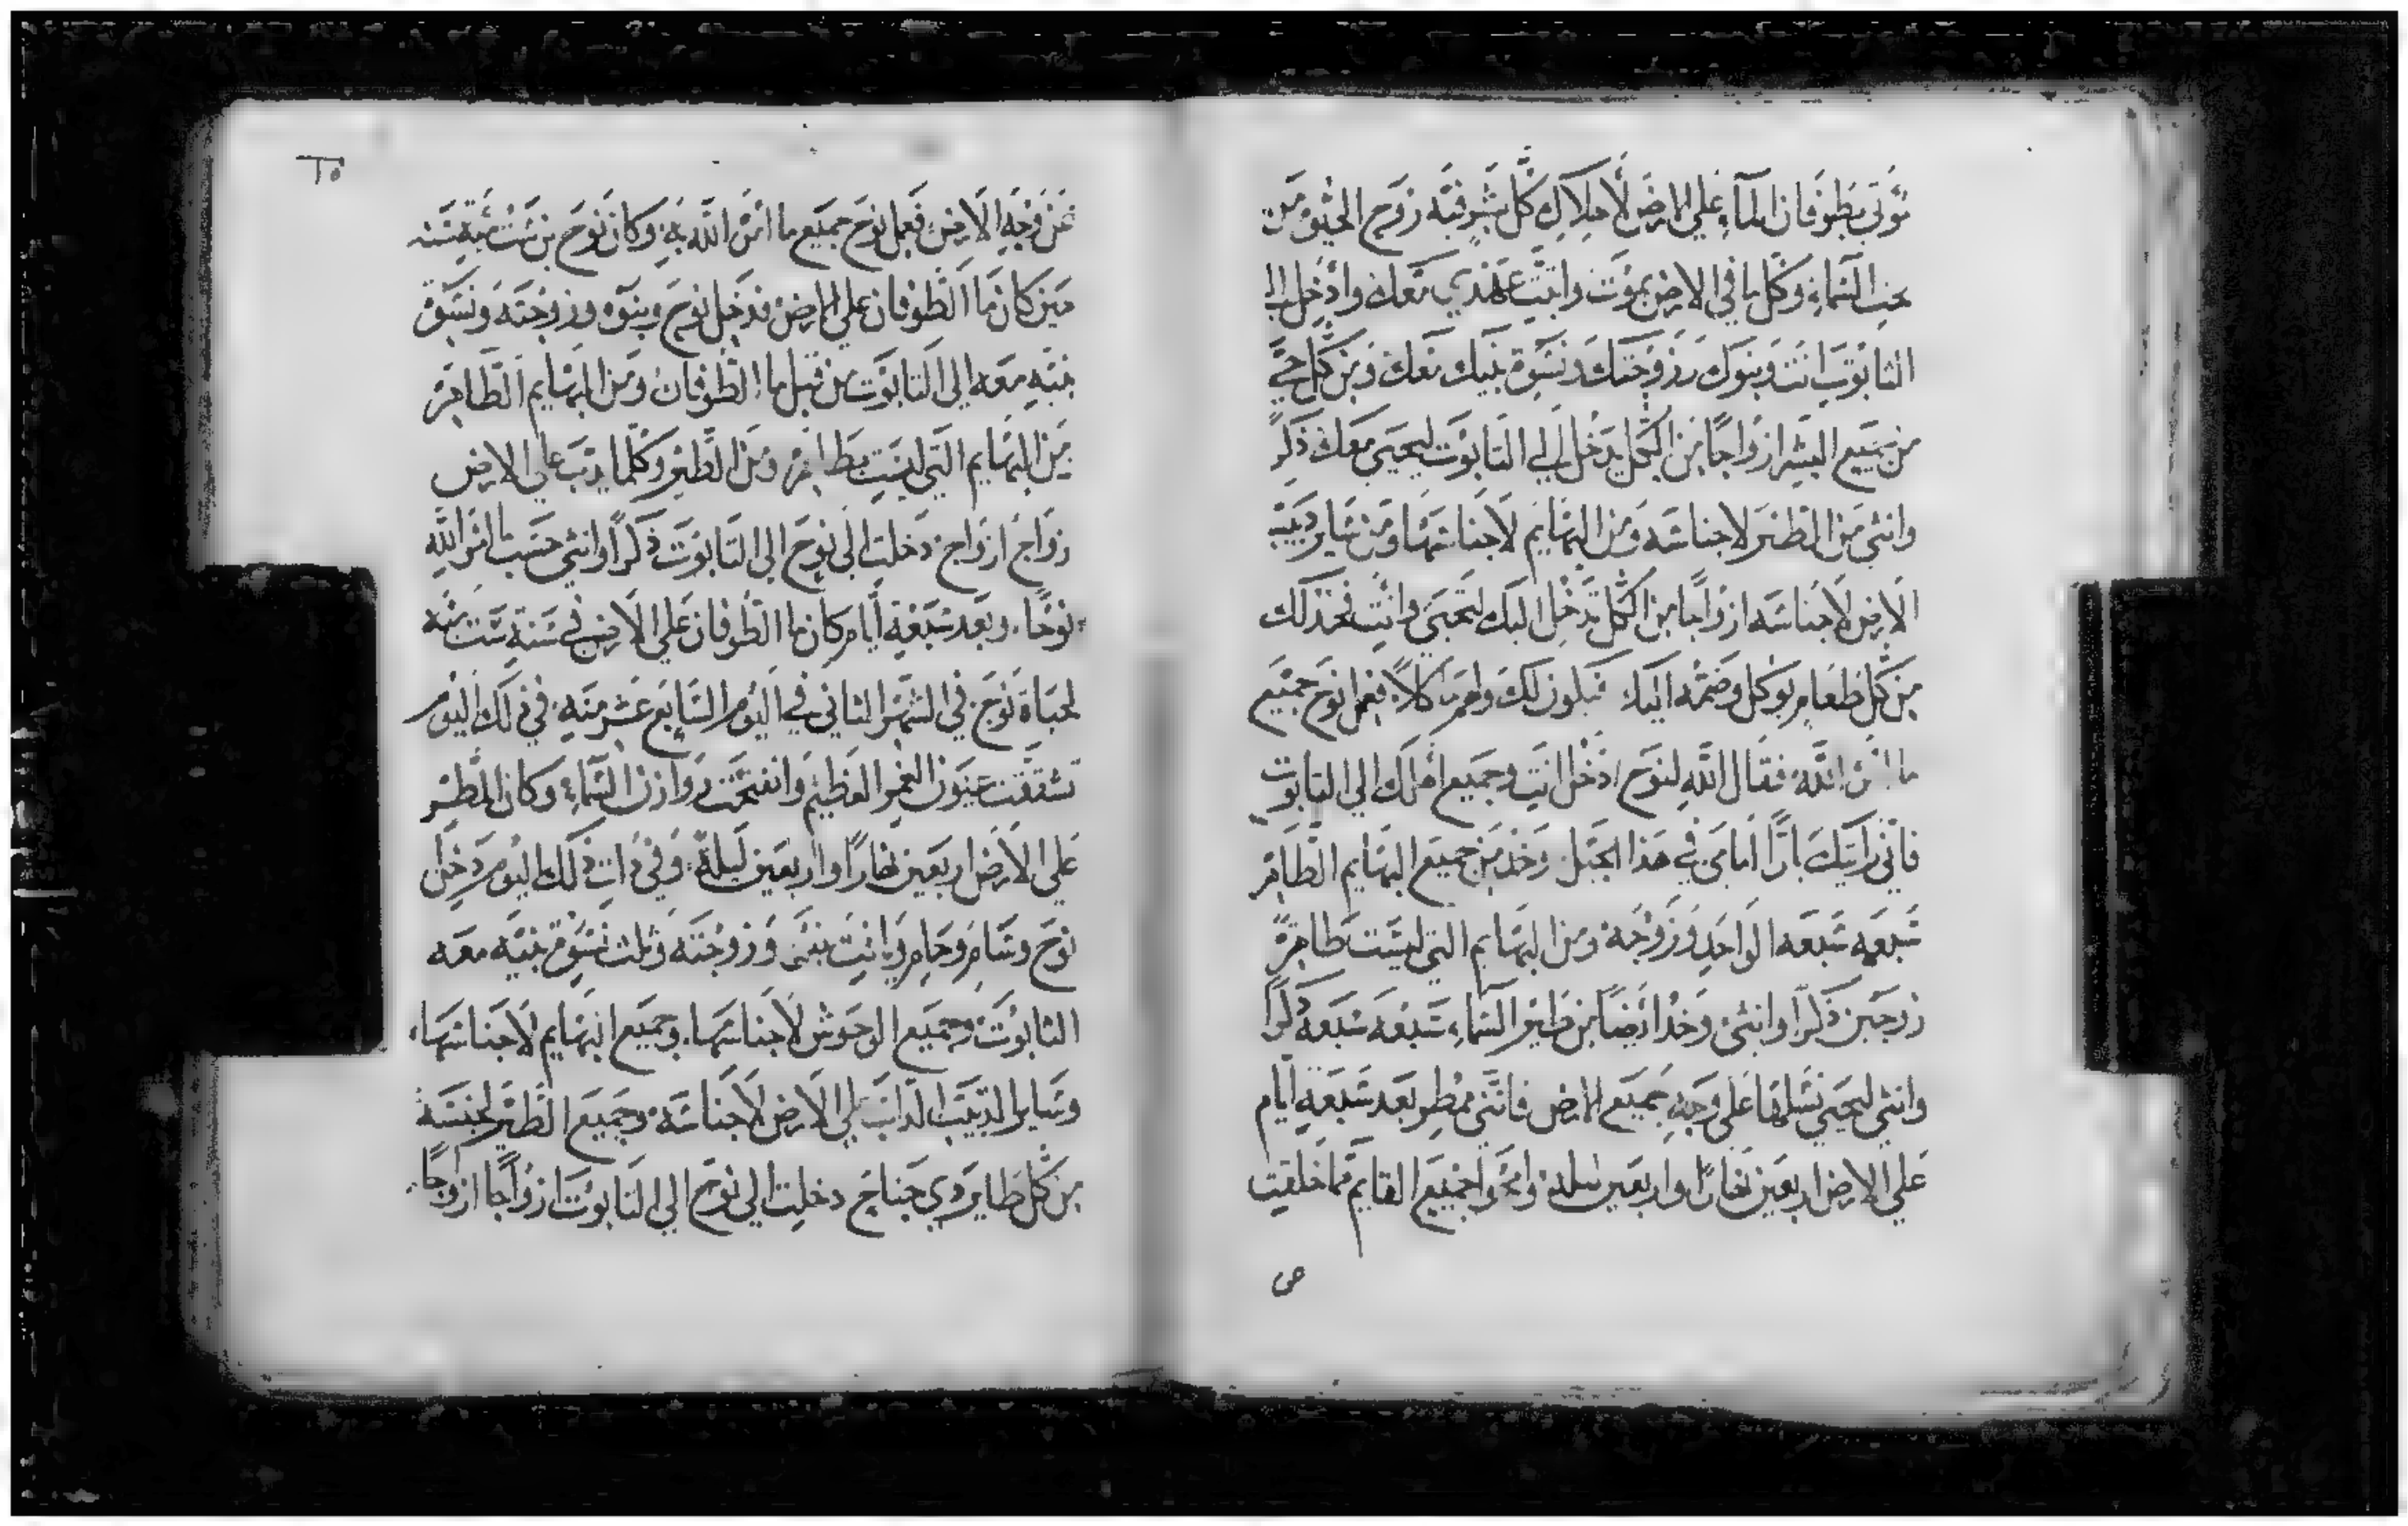 نوتي بطوفان الماء علي الارض لاهلاك كل بشر فيه روح الحيوة من
تحت السماء وكل ما في الارض يموت واثبت عهدي معك وادخل الي
التابوت انت وبنوك وزوجتك ونسوة بنيك معك ومن كل حي
من جميع البشر ازواجا من الكل يدخل الي التابوت ليحيي معك ذكر
وانثي من الطير لاجناسه ومن البهايم لاجناسها ومن ساير دبيب
الارض لاجناسه ازواجا من الكل تدخل اليك لتحيي وانت فخد لك
من كل طعام يوكل وضمه اليك فيكون لك ولهم ماكلا ففعل نوح جميع
ما امره الله فقال الله لنوح ادخل انت وجميع اهلك الي التابوت
فانني رايتك بارا امامي في هذا الجيل وخد من جميع البهايم الطاهر
سبعه سبعه الواحد وزوجه ومن البهايم التي ليست طاهرة
زوجين ذكرا وانثي وخد ايضا من طير السماء سبعه سبعه ذكرا
وانثي ليحيي نسلها علي وجه جميع الارض فانني ممطر بعد سبعة ايام
علي الارض اربعين نهارا واربعين ليلة وامحوا جميع القايم مما خلقت
عن
٢٥
عن وجه الارض ففعل نوح جميع ما امره الله به وكان نوح بن ست ميه سنه
حين كان ما الطوفان علي الارض فدخل نوح وبنوه وزوجته ونسوة
بنيه معه الي التابوت من قبل ما الطوفان ومن البهايم الطاهره
من البهايم التي ليست بطاهره ومن الطير وكلما يدب علي الارض
زواج ازواج دخلت الي نوح الي التابوت ذكرا وانثي حسب ما امر الله
نوحا وبعد سبعة ايام كان ما الطوفان علي الارض في سنة ست ميه
لحياة نوح في الشهر الثاني في اليوم السابع عشر منه في ذلك اليوم
تشققت عيون الغمر العظيم وانفتحت روازن السماء وكان المطر
علي الارض اربعين نهارا واربعين ليلة وفي ذات ذلك اليوم دخل
نوح وسام وحام ويافت بني وزوجته وثلث نسوة بنيه معه
التابوت وجميع الوحوش لاجناسها وجميع البهايم لاجناسها
وساير الدبيب الداب علي الارض لاجناسه وجميع الطير لجنسه
من كل طاير دي جناح دخلت الي نوح الي التابوت ازواجا ازواجا